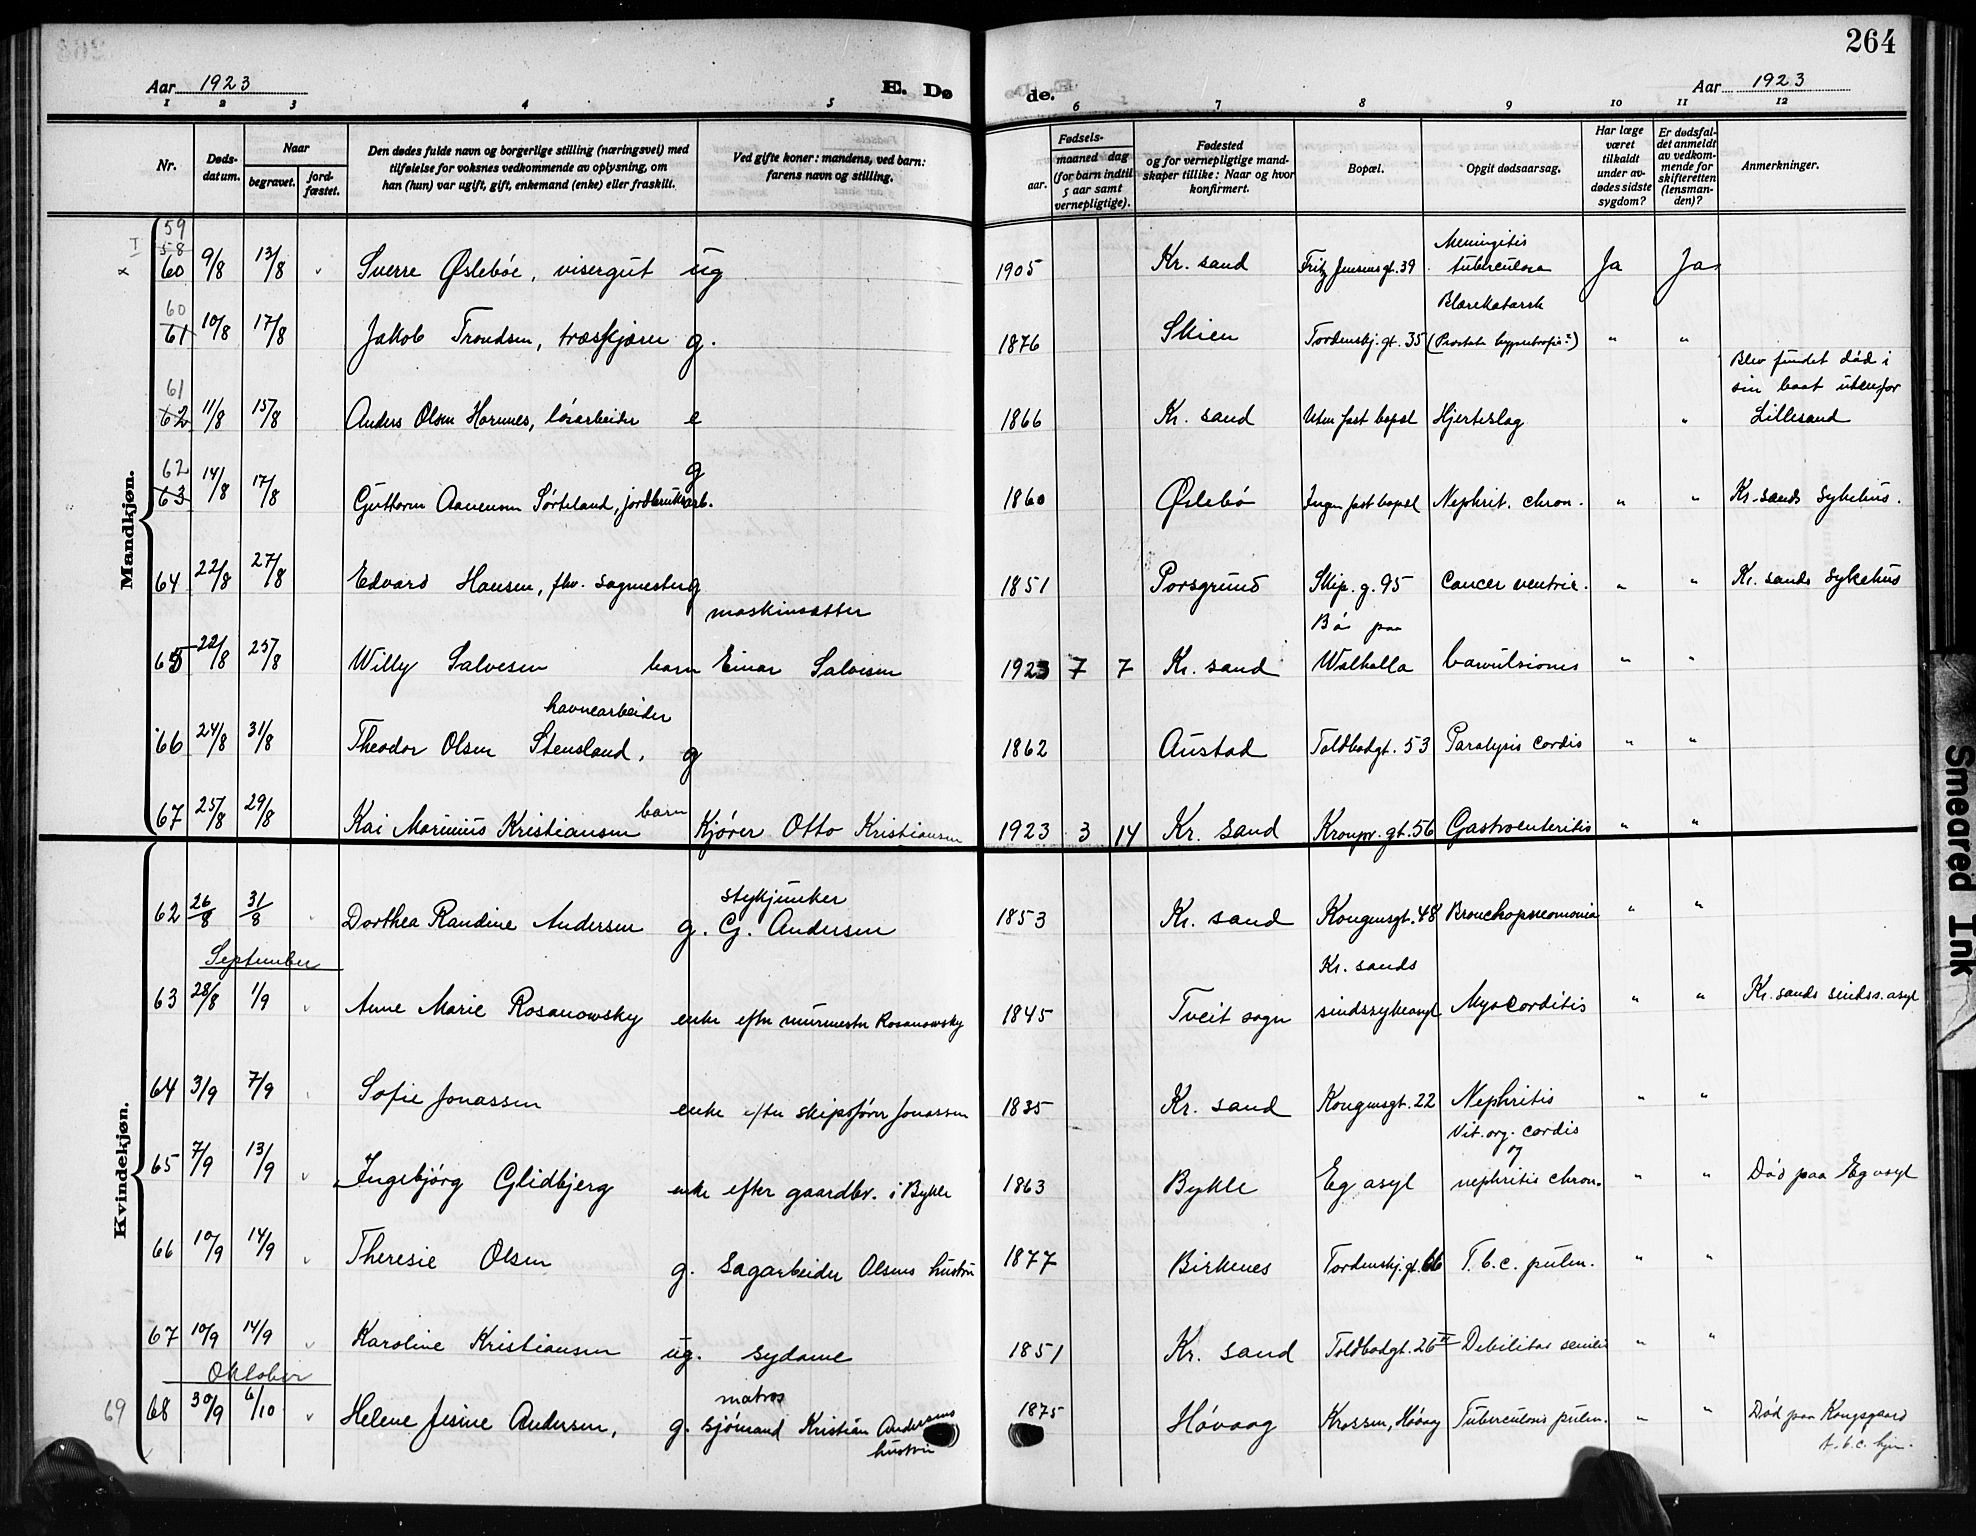 264
Aar 1923 E. Dø de. Aar 1923
1 2 3 4 5 6 7 8 9 10 11 12
Nr. Døds-datum. Naar begravet. jord-fæstet. Den dødes fulde navn og borgerlige stilling (næringsvei) med tilføielse for voksnes vedkommende av oplysning, om han (hun) var ugift, gift, enkemand (enke) eller fraskilt. Ved gifte koner: mandens, ved barn: farens navn og stilling. Fødsels- aar. maaned dag (for barn indtil 5 aar samt vernepligtige). Fødested og for vernepligtige mand-skaper tillike: Naar og hvor konfirmert. Bopæl. Opgit dødsaarsag. Har læge været tilkaldt under av-dødes sidste sygdom? Er dødsfal-det anmeldt av vedkom-mende for skifteretten (lensman-den)? Anmerkninger.
Mandkjøn.
59 58 60 9/8 13/8 Sverre Øslebóe, visergut ug 1905 Kr. sand Fritz Jensensgt. 39 Meningitis tuberculosa Ja Ja
60 61 10/8 17/8 Jakob Trondsen, træskjærer g. 1876 Skien Tordenskj. gt. 35 Blærekatarrh (Prostata hypertrofie?) " "
61 62 11/8 15/8 Anders Olsen Hornnes, løsarbeider e 1866 Kr. sand Uten fast bopæl Hjerteslag " Blev fundet død i sin baat utenfor Lillesand
62 63 14/8 17/8 Guttorm Aanensen Sørteland, jordbruksarb. g 1860 Øslebø Ingen fast bopæl Nephrit. chron. " " Kr.sands sykehus.
64 22/8 27/8 Edvard Hansen, fhv. sagmester g 1851 Porsgrund Skip. g. 95 Cancer ventric. " " Kr. sands sykehus
65 22/8 25/8 Willy Salvesen barn maskinsætter Einar Salvesen 1923 7 7 Kr. sand Bó paa Walhalla Convulsiones " "
66 24/8 31/8 Theodor Olsen Stensland, havnearbeider g 1862 Austad Toldbodgt. 53 Paralysis cordis " "
67 25/8 29/8 Kai Marinius Kristiansen barn Kjører Otto Kristiansen 1923 3 14 Kr. sand Kronpr. gt. 56 Gastroenteritis " "
Kvindekjøn.
62 26/8 31/8 Dorthea Randine Andersen g. stykjunker G. Andersen 1853 Kr. sand Kongensgt. 48 Bronchopneomonia " "
September
63 28/8 1/9 Anne Marie Rosanowsky enke efter murmester Rosanowsky 1845 Tveit sogn Kr. sands sindssykeasyl Myocorditis " " Kr. sands sindss. asyl
64 3/9 7/9 Sofie Jonassen enke efter skipsfører Jonassen 1835 Kr. sand Kongensgt. 22 Nephritis " "
65 7/9 13/9 Ingebjørg Glidbjerg enke efter gaardbr. i Bykle 1863 Bykle Eg asyl Vit. org. cordis og nephritis chron. " " Død paa Eg asyl
66 10/9 14/9 Theresie Olsen g. Sagarbeider Olsens hustru 1877 Birkenes Tordenskj. gt. 66 T. b. c. pulm. " "
67 10/9 14/9 Karoline Kristiansen ug. sydame 1851 Kr. sand Toldbodgt. 26 II Debilitas senilis " "
Oktober
69 68 30/9 6/10 Helene Jesine Andersen, g. matros sjømand Kristian Andersens hustru 1875 Høvaag Krossen, Høvåg Tuberculosis pulm. " " Død paa Kongsgaard t. b. c. hjem.
Smeared Ink